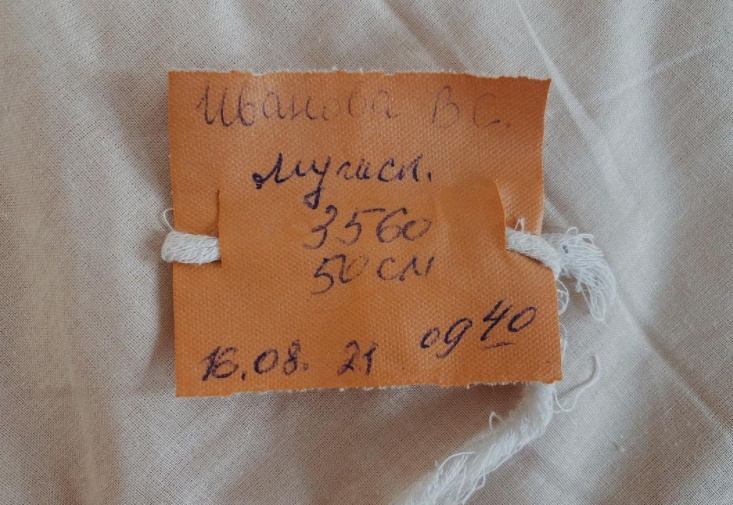 Иванова В С.
мужск.
3560
50 см
16.08. 21 09 40